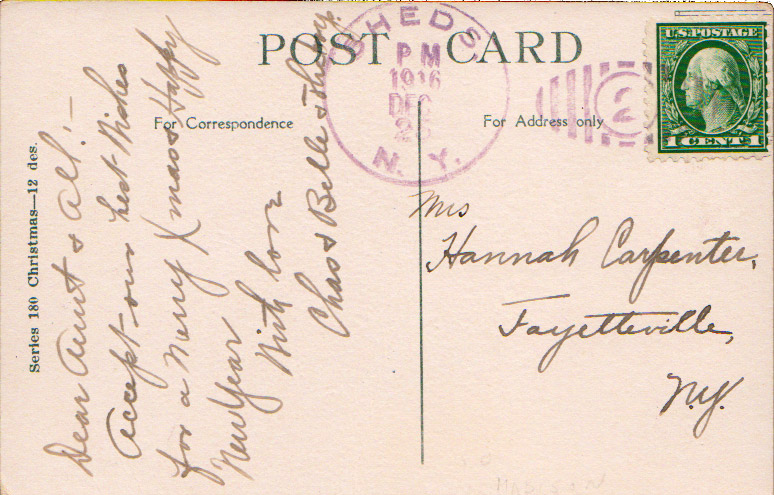 POST CARD
For Correspondence
For Address only
SHEDS,
PM
1916
DEC
N. Y.
2
U.S. POSTAGE
1 CENT 1
Series 180 Christmas—12 des.
Dear Aunt & all:—
Accept our best wishes
for a Merry Xmas & Happy
New Year
With love
Chas & Belle &
Mrs
Hannah Carpenter,
Fayetteville,
N.Y.
MADISON